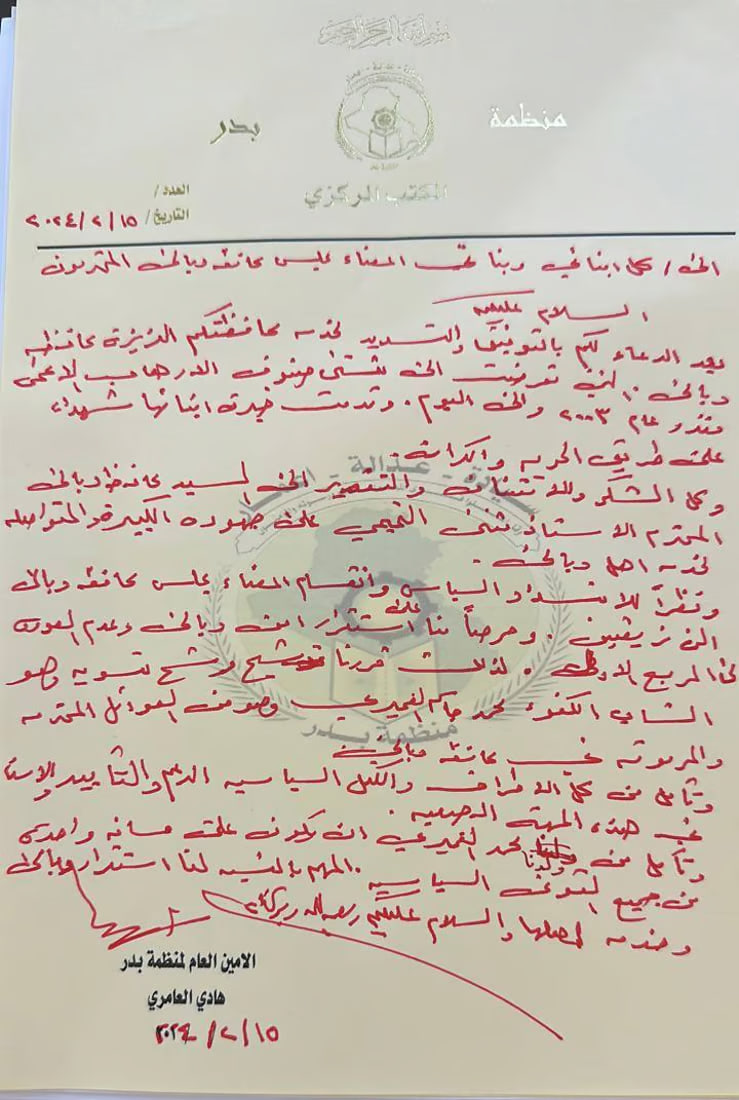 بسم الله الرحمن الرحيم
منظمة بدر
المكتب المركزي
العدد /
التاريخ / ١٥ / ٢ / ٢٠٢٤
الى / كل ابنائي وبناتي اعضاء مجلس محافظه ديالى المحترمون
السلام عليكم
بعد الدعاء لكم بالتوفيق والتسديد لخدمه محافظتكم العزيزة محافظه
ديالى .. التي تعرضت الى شتى صنوف الارهاب الاعمى
منذ عام ٢٠٠٣ والى اليوم . وقدمت خيرة ابنائها شهداء
على طريق الحريه والكرامه
وكل الشكر والامتنان والتقدير الى السيد محافظ ديالى
المحترم الاستاذ مثنى التميمي على جهوده الكبيرة والمتواصله
لخدمه اهل ديالى .
ونظراً للانسداد السياسي وانقسام اعضاء مجلس محافظه ديالى
الى فريقين . وحرصاً منا على استقرار امن ديالى وعدم العودة
الى المربع الاول . لذلك قررنا ترشيح مرشح تسويه وهو
الشاب الكفوء محمد جاسم العميري وهو من العوائل المحترمه
والمرموقه في محافظه ديالى
ونأمل من كل الاطراف والكتل السياسيه الدعم والتأييد والاسناد
في هذه المهمه الصعبه .
ونأمل من ولدنا محمد العميري ان يكون على مسافه واحدة
من جميع القوى السياسيه . المهم بالنسبه لنا استقرار ديالى
وخدمه اهلها والسلام عليكم ورحمه الله وبركاته
الامين العام لمنظمة بدر
هادي العامري
١٥ / ٢ / ٢٠٢٤
منظمة بدر